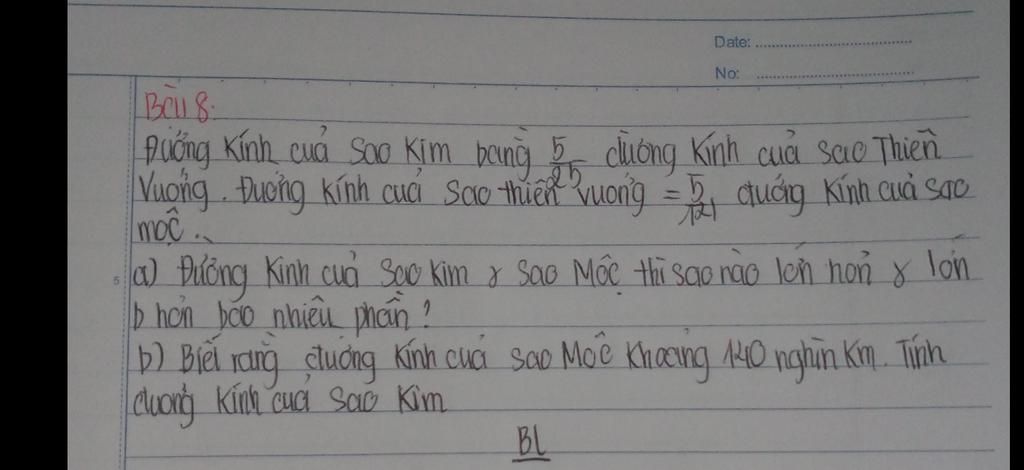 Date: ........................................
No: ........................................
Bài 8:
Đường kính của Sao Kim bằng 5/25 đường kính của Sao Thiên
Vương. Đường kính của Sao thiên vương = 5/121 đường kính của sao
mộc..
a) Đường kính của Sao Kim & Sao Mộc thì sao nào lớn hơn & lớn
b hơn bao nhiêu phần?
b) Biết rằng đường kính của Sao Mộc khoảng 140 nghìn km. Tính
đường kính của Sao Kim
BL